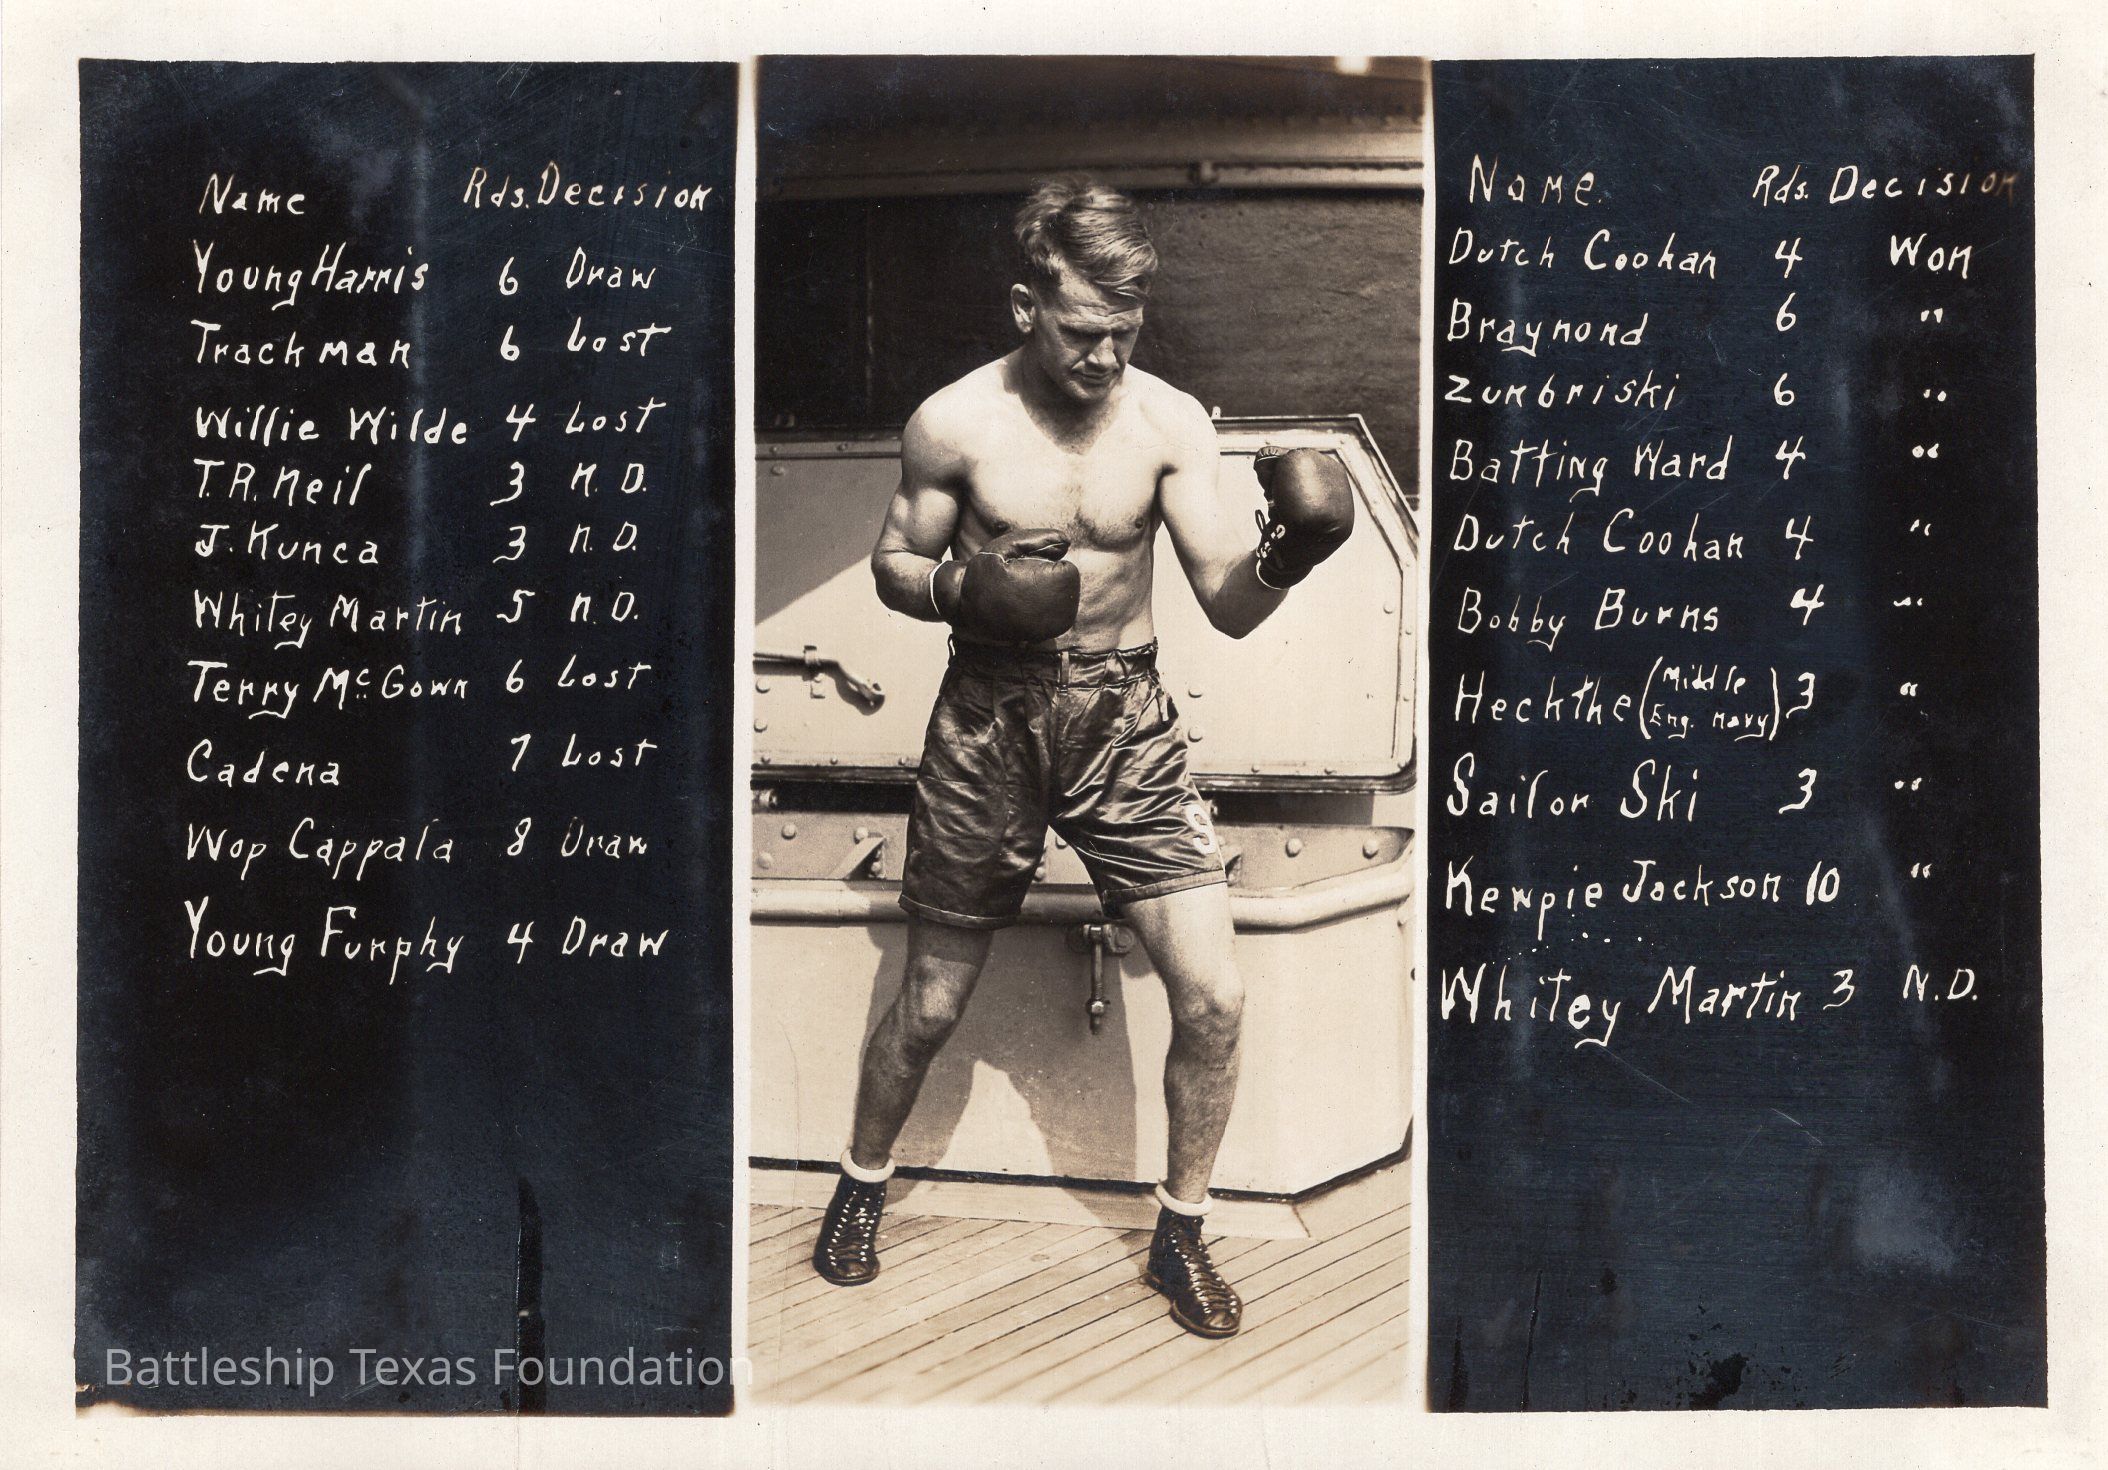 Name Rds. Decision
Young Harris 6 Draw
Trackman 6 Lost
Willie Wilde 4 Lost
T.R. Neil 3 N. D.
J. Kunca 3 N. D.
Whitey Martin 5 N. D.
Terry McGown 6 Lost
Cadena 7 Lost
Wop Cappala 8 Draw
Young Furphy 4 Draw
Battleship Texas Foundation
S
Name. Rds. Decision
Dutch Coohan 4 Won
Braynond 6 "
Zunbriski 6 "
Batting Ward 4 "
Dutch Coohan 4 "
Bobby Burns 4 "
Heckthe (Middle Eng. Navy) 3 "
Sailor Ski 3 "
Kewpie Jackson 10 "
Whitey Martin 3 N.D.